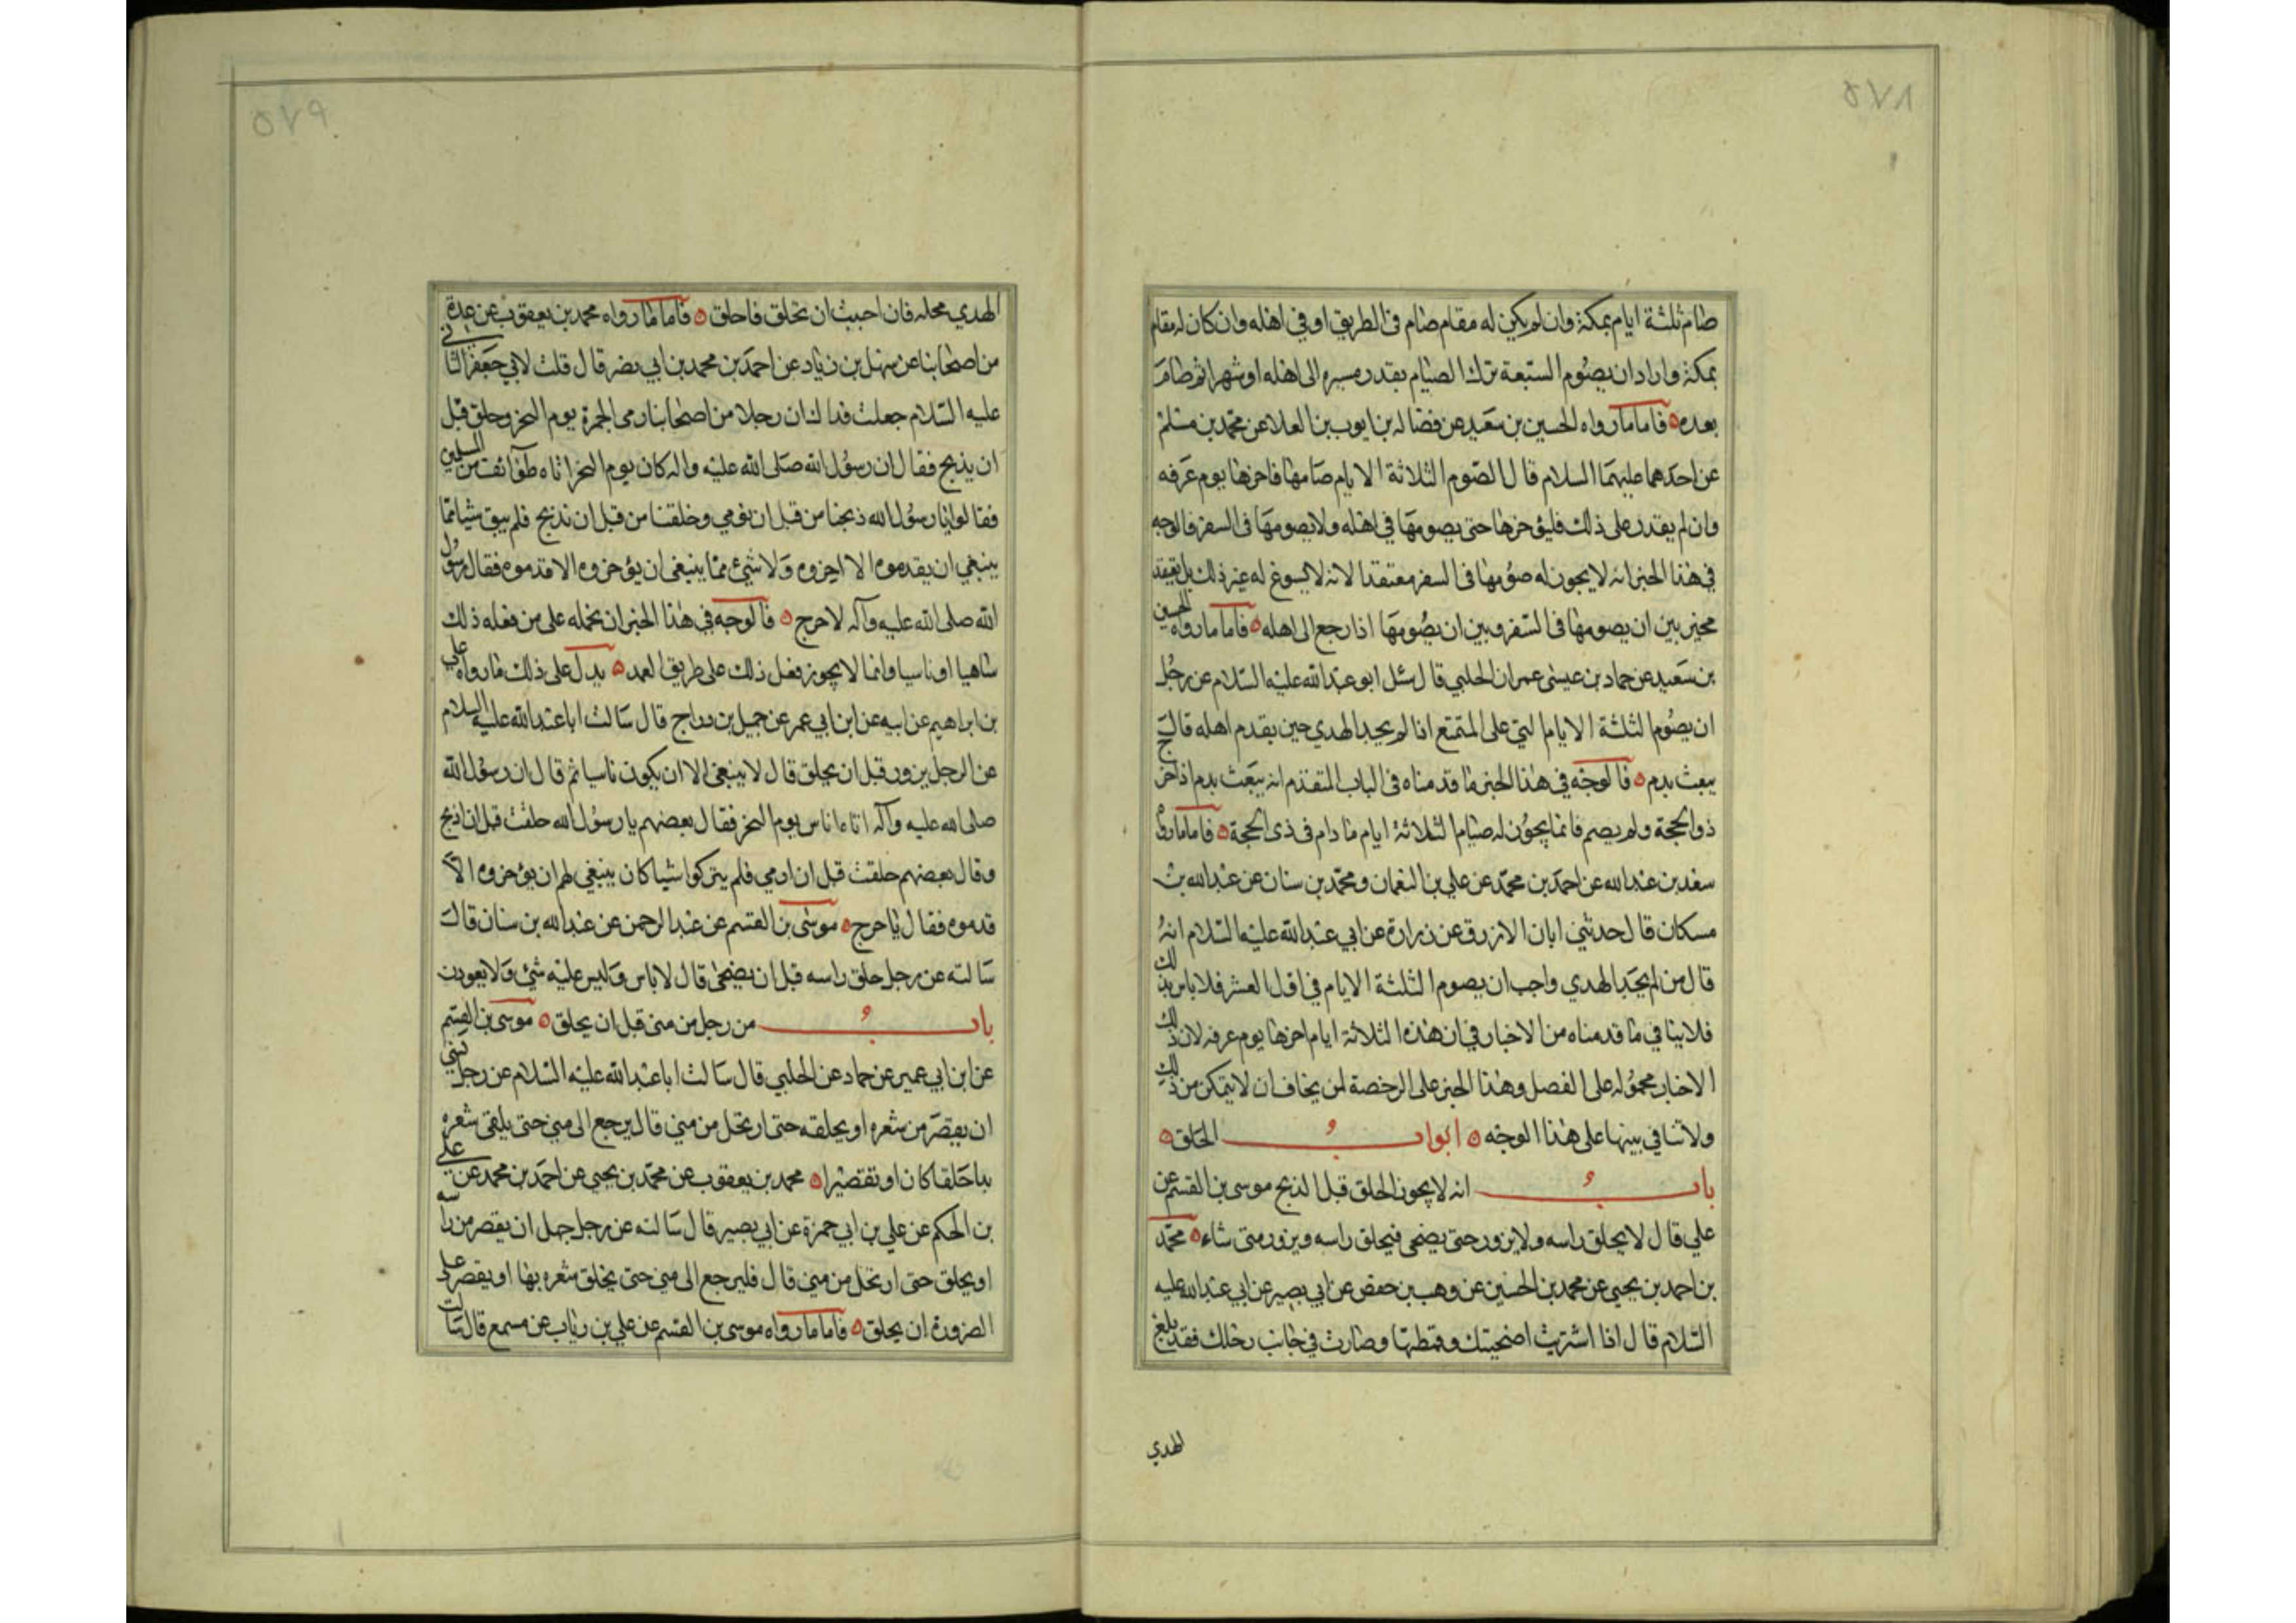 ٥٧٨
صام ثلثة ايام بمكة وان لم يكن له مقام صام في الطريق او في اهله وان كان له مقام
بمكة واراد ان يصوم السبعة ترك الصيام بقدر مسيره الى اهله او شهرا ثم صام
بعده ه فاما ما رواه الحسين بن سعيد عن فضاله بن ايوب بن العلا عن محمد بن مسلم
عن احدهما عليهما السلام قال الصوم الثلاثة الايام صامها فاخرها يوم عرفه
وان لم يقدر على ذلك فليؤخرها حتى يصومها في اهله ولا يصومها في السفر فالوجه
في هذا الخبر انه لا يجوز له صومها في السفر معتقدا لانه لا يسوغ له غير ذلك بل يعتقد
مخير بين ان يصومها في السفر وبين ان يصومها اذا رجع الى اهله ه فاما ما رواه الحسين
بن سعيد عن حماد بن عيسى عمران الحلبي قال سئل ابو عبد الله عليه السلام عن رجل
ان يصوم الثلثة الايام التي على المتمتع اذا لم يجد الهدي حين يقدم اهله قال
يبعث بدم ه فالوجه في هذا الخبر ما قدمناه في الباب المتقدم انه يبعث بدم اذا خرج
ذو الحجة ولم يصم فانما يجوز له صيام الثلاثة ايام ما دام في ذى الحجة ه فاما ما رواه
سعد بن عبد الله عن احمد بن محمد عن علي بن النعمان ومحمد بن سنان عن عبد الله بن
مسكان قال حدثني ابان الازرق عن زرارة عن ابي عبد الله عليه السلام انه
قال من لم يجد الهدي واحب ان يصوم الثلثة الايام في اول العشر فلا باس بذلك
فلا ينافي ما قدمناه من الاخبار في ان هذه الثلاثة ايام اخرها يوم عرفه لان ذلك
الاخبار محموله على الفصل وهذا الخبر على الرخصة لمن يخاف ان لا يتمكن من ذلك
ولا تنافي بينها على هذا الوجه ه ابواب الحلق ه
باب انه لا يجوز الحلق قبل الذبح موسى بن القسم عن
علي قال لا يحلق راسه ولا يزور حتى يضحى فيحلق راسه ويزور متى شاء ه محمد
بن احمد بن يحيى عن محمد بن الحسين عن وهب بن حفص عن ابي بصير عن ابي عبد الله عليه
السلام قال اذا اشتريت اضحيتك وقمطتها وصارت في جانب رحلك فقد بلغ
الهدي
٥٧٩
الهدي محله فان احببت ان تحلق فاحلق ه فاما ما رواه محمد بن يعقوب عن عدة
من اصحابنا عن سهل بن زياد عن احمد بن محمد بن ابي نصر قال قلت لابي جعفر الثاني
عليه السلام جعلت فداك ان رجلا من اصحابنا رمى الجمرة يوم النحر وحلق قبل
ان يذبح فقال ان رسول الله صلى الله عليه واله كان يوم النحر اتاه طوآئف من المسلمين
فقالوا يا رسول الله ذبحنا من قبل ان نرمي وحلقنا من قبل ان نذبح فلم يبق شيا مما
ينبغي ان يقدموه الا اخروه ولا شيء مما ينبغي ان يؤخروه الا قدموه فقال رسول
الله صلى الله عليه وآله لا حرج ه فالوجه في هذا الخبر ان نحمله على من فعله ذلك
ساهيا او ناسيا وانما لا يجوز فعل ذلك على طريق العمد ه يدل على ذلك ما رواه علي
بن ابراهيم عن ابيه عن ابن ابي عمر عن جميل بن دراج قال سالت ابا عبد الله عليه السلام
عن الرجل يزور قبل ان يحلق قال لا ينبغي الا ان يكون ناسيا ثم قال ان رسول الله
صلى الله عليه وآله اتاه اناس يوم النحر فقال بعضهم يا رسول الله حلقت قبل ان اذبح
وقال بعضهم حلقت قبل ان ارمي فلم يتركوا شيا كان ينبغي لهم ان يؤخروه الا
قدموه فقال لا حرج ه موسى بن القسم عن عبد الرحمن عن عبد الله بن سنان قال
سالته عن رجل حلق راسه قبل ان يضحى قال لا باس وليس عليه شئ ولا يعودن
باب من رحل من منى قبل ان يحلق ه موسى بن القسم
عن ابن ابي عمير عن حماد عن الحلبي قال سالت ابا عبد الله عليه السلام عن رجل نسي
ان يقصر من شعره او يحلقه حتى ارتحل من منى قال يرجع الى منى حتى يلقى شعره
بها حلقا كان او تقصيرا ه محمد بن يعقوب عن محمد بن يحيى عن احمد بن محمد عن علي
بن الحكم عن علي بن ابي حمزة عن ابي بصير قال سالته عن رجل جهل ان يقصر من راسه
او يحلق حتى ارتحل من منى قال فليرجع الى منى حتى يحلق شعره بها او يقصر على
الصرورة ان يحلق ه فاما ما رواه موسى بن القسم عن علي بن رياب عن مسمع قال سالت